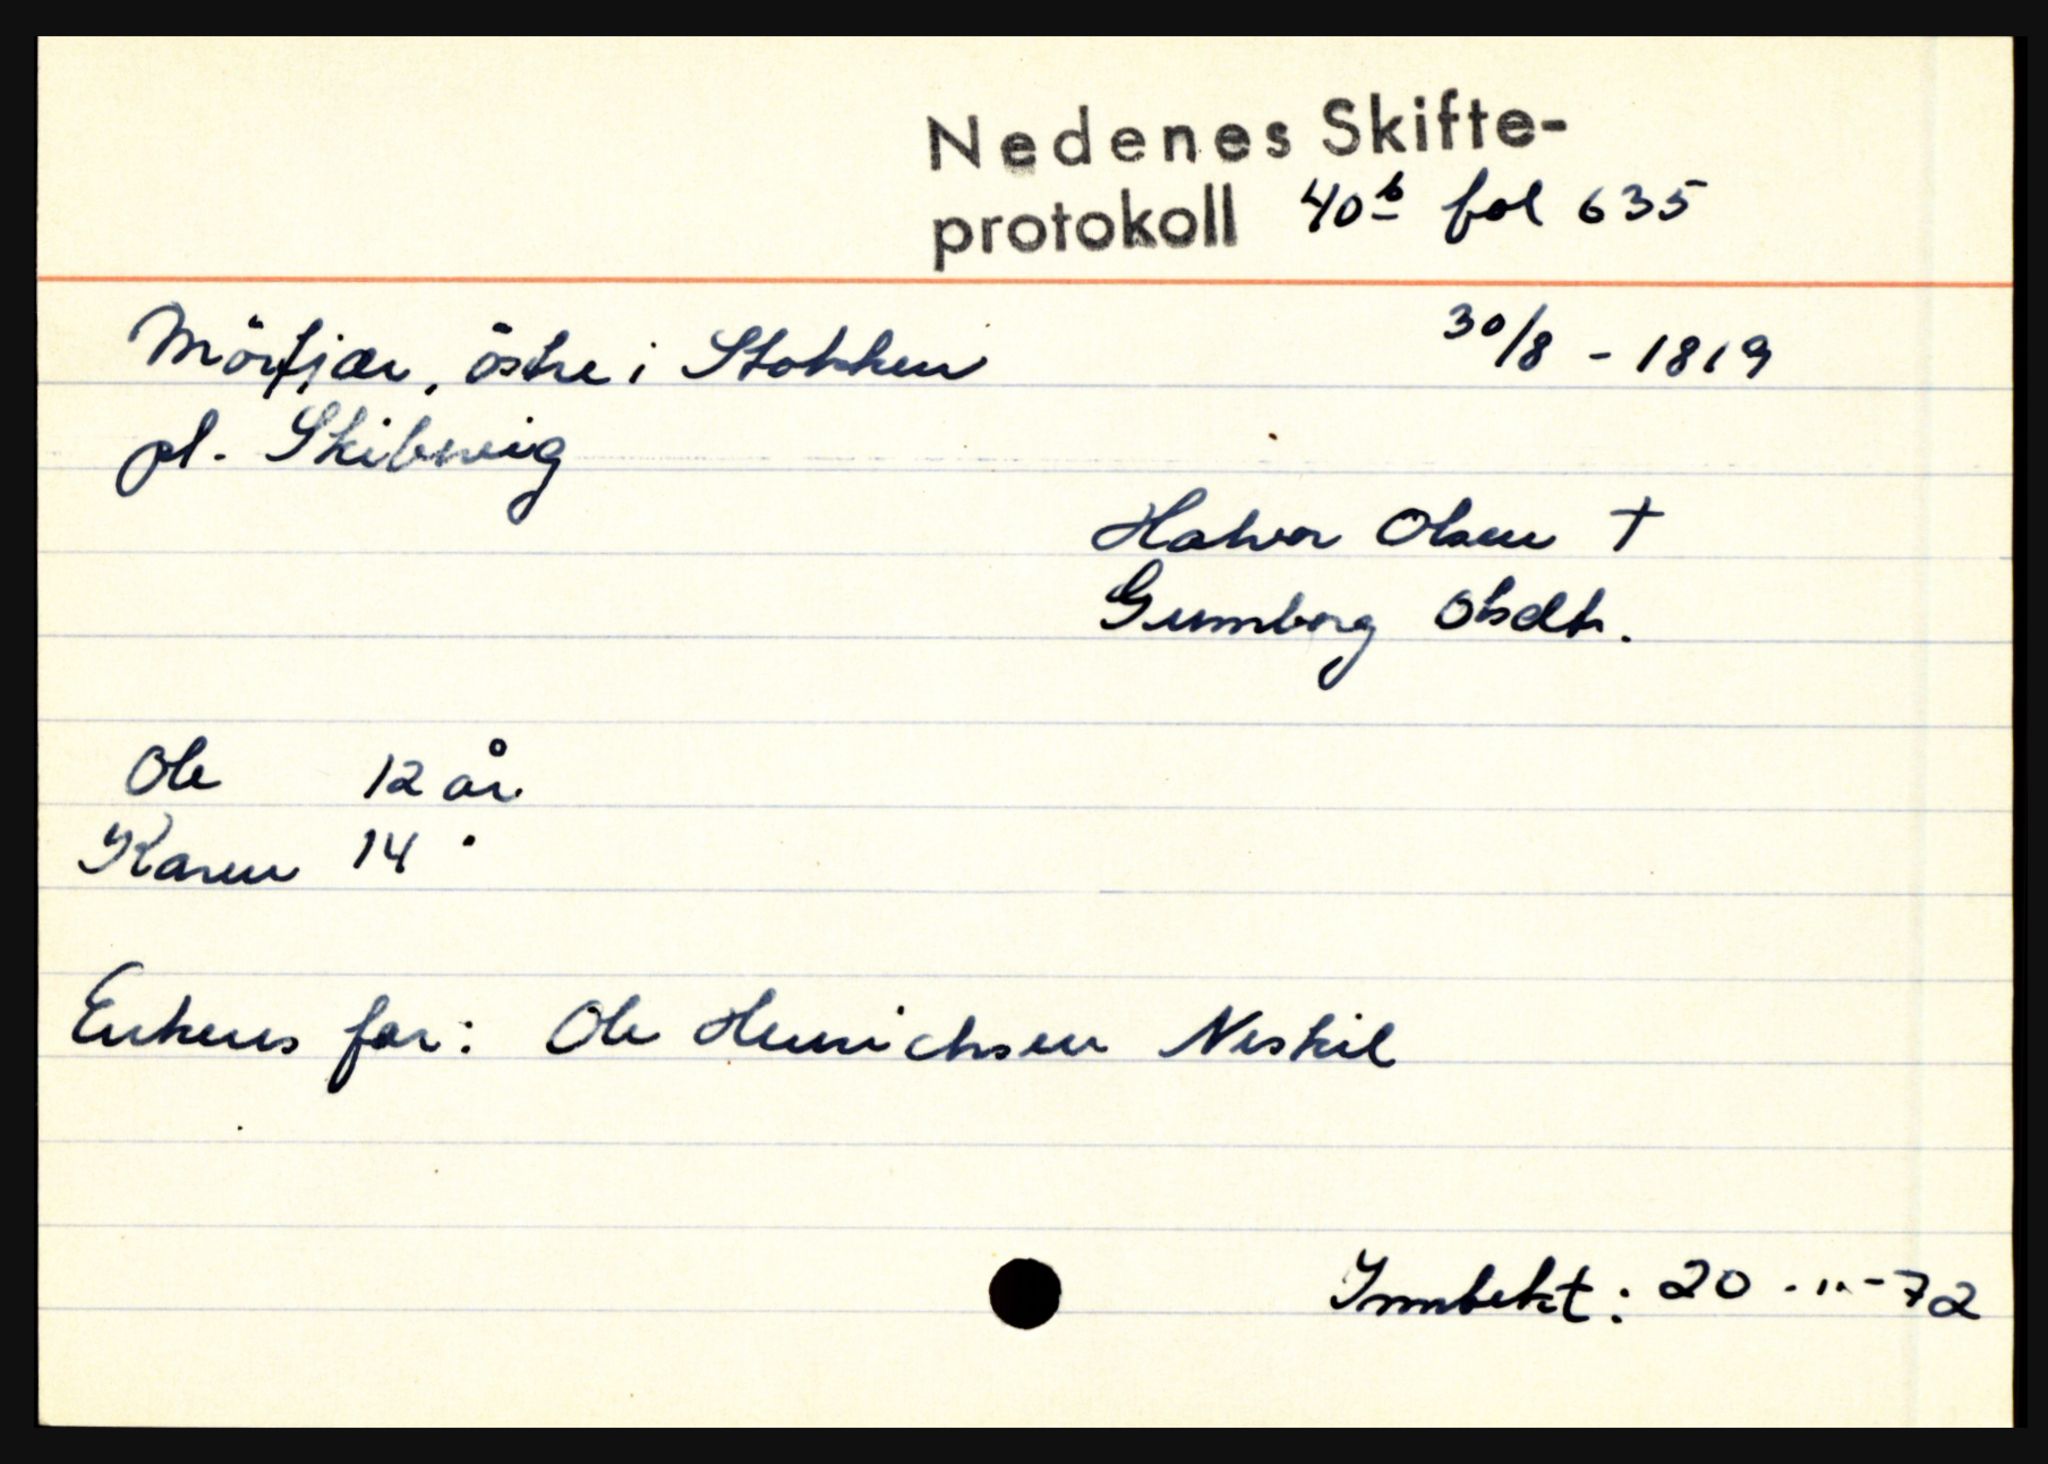 Nedenes Skifte-
protokoll 40b fol 635
Mörfjær, östre i Stokken 30/8 - 1819
pl. Skibsvig
Halvor Olsen †
Gunnborg Olsdtr.
Ole 12 år
Karen 14 "
Enkens far: Ole Henrichsen Neskil
Innbekt: 20 - " - 72